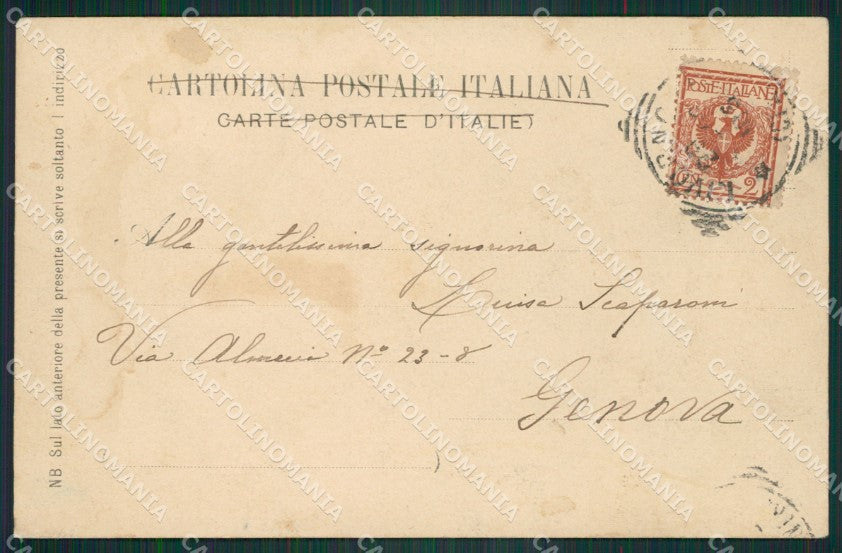 CARTOLINA POSTALE ITALIANA
CARTE POSTALE D'ITALIE)
POSTE·ITALIANE
CENT. 2
Alla gentilissima signorina
Luisa Scaparoni
Via N° 23-8
Genova
NB Sul lato anteriore della presente si scrive soltanto l indirizzo
CARTOLINOMANIA